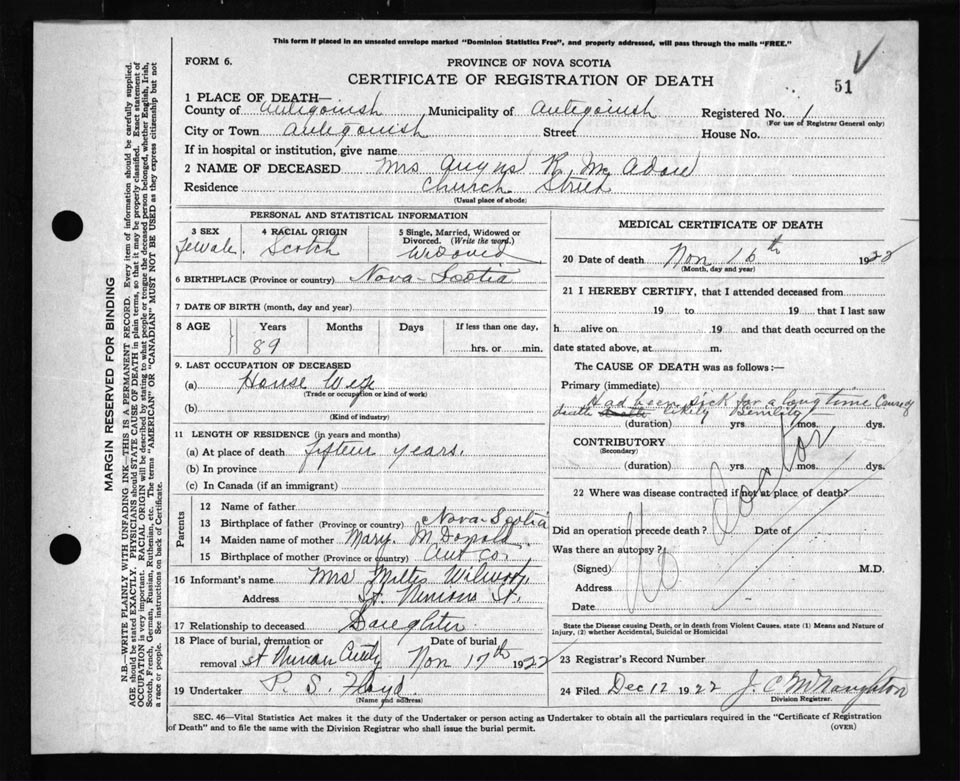 This form if placed in an unsealed envelope marked "Dominion Statistics Free", and properly addressed, will pass through the mails "FREE."
FORM 6.
PROVINCE OF NOVA SCOTIA
CERTIFICATE OF REGISTRATION OF DEATH
51
1 PLACE OF DEATH—
County of Antigonish Municipality of Antigonish Registered No. 1
(For use of Registrar General only)
City or Town Antigonish Street House No.
If in hospital or institution, give name
2 NAME OF DECEASED Mrs Angus K. Mc Adare
Residence Church Street
(Usual place of abode)
PERSONAL AND STATISTICAL INFORMATION
3 SEX 4 RACIAL ORIGIN 5 Single, Married, Widowed or Divorced. (Write the word.)
Female. Scotch Widowed
6 BIRTHPLACE (Province or country) Nova-Scotia
7 DATE OF BIRTH (month, day and year)
8 AGE Years Months Days If less than one day,
89 hrs. or min.
9. LAST OCCUPATION OF DECEASED
(a) House Wife
(Trade or occupation or kind of work)
(b)
(Kind of industry)
11 LENGTH OF RESIDENCE (in years and months)
(a) At place of death fifteen years.
(b) In province
(c) In Canada (if an immigrant)
Parents
12 Name of father
13 Birthplace of father (Province or country) Nova-Scotia
14 Maiden name of mother Mary. McDonald
15 Birthplace of mother (Province or country) Ant Co.
16 Informant's name Mrs
Address St. Ninians St.
17 Relationship to deceased Daughter
18 Place of burial, cremation or removal St Ninian Date of burial Nov 17th 1922
19 Undertaker P. S. Floyd.
(Name and address)
MEDICAL CERTIFICATE OF DEATH
20 Date of death Nov 16th 192
(Month, day and year)
21 I HEREBY CERTIFY, that I attended deceased from
19 to 19 that I last saw
h alive on 19 and that death occurred on
date stated above, at m.
The CAUSE OF DEATH was as follows:—
Primary (immediate)
Had been sick for a long time Cause of
death likely Senility
(duration) yrs. mos. dys.
CONTRIBUTORY
(Secondary)
(duration) yrs. mos. dys.
22 Where was disease contracted if not at place of death?
Did an operation precede death? Date of
Was there an autopsy?
(Signed) M.D.
Address
Date
No Doctor
State the Disease causing Death, or in death from Violent Causes, state (1) Means and Nature of
Injury, (2) whether Accidental, Suicidal or Homicidal
23 Registrar's Record Number
24 Filed Dec 12 1922 J. C McNaughton
Division Registrar.
SEC. 46—Vital Statistics Act makes it the duty of the Undertaker or person acting as Undertaker to obtain all the particulars required in the "Certificate of Registration
of Death" and to file the same with the Division Registrar who shall issue the burial permit.
(OVER)
MARGIN RESERVED FOR BINDING
N.B.—WRITE PLAINLY WITH UNFADING INK—THIS IS A PERMANENT RECORD. Every item of information should be carefully supplied.
AGE should be stated EXACTLY. PHYSICIANS should STATE CAUSE OF DEATH in plain terms, so that it may be properly classified. Exact statement of
OCCUPATION is very important. RACIAL ORIGIN will be described by stating to what people or tongue the deceased person belonged, whether English, Irish,
Scotch, French, German, Russian, Ruthenian, etc. The terms "AMERICAN" OR "CANADIAN" MUST NOT BE USED as they express citizenship but not
a race or people. See instructions on back of Certificate.